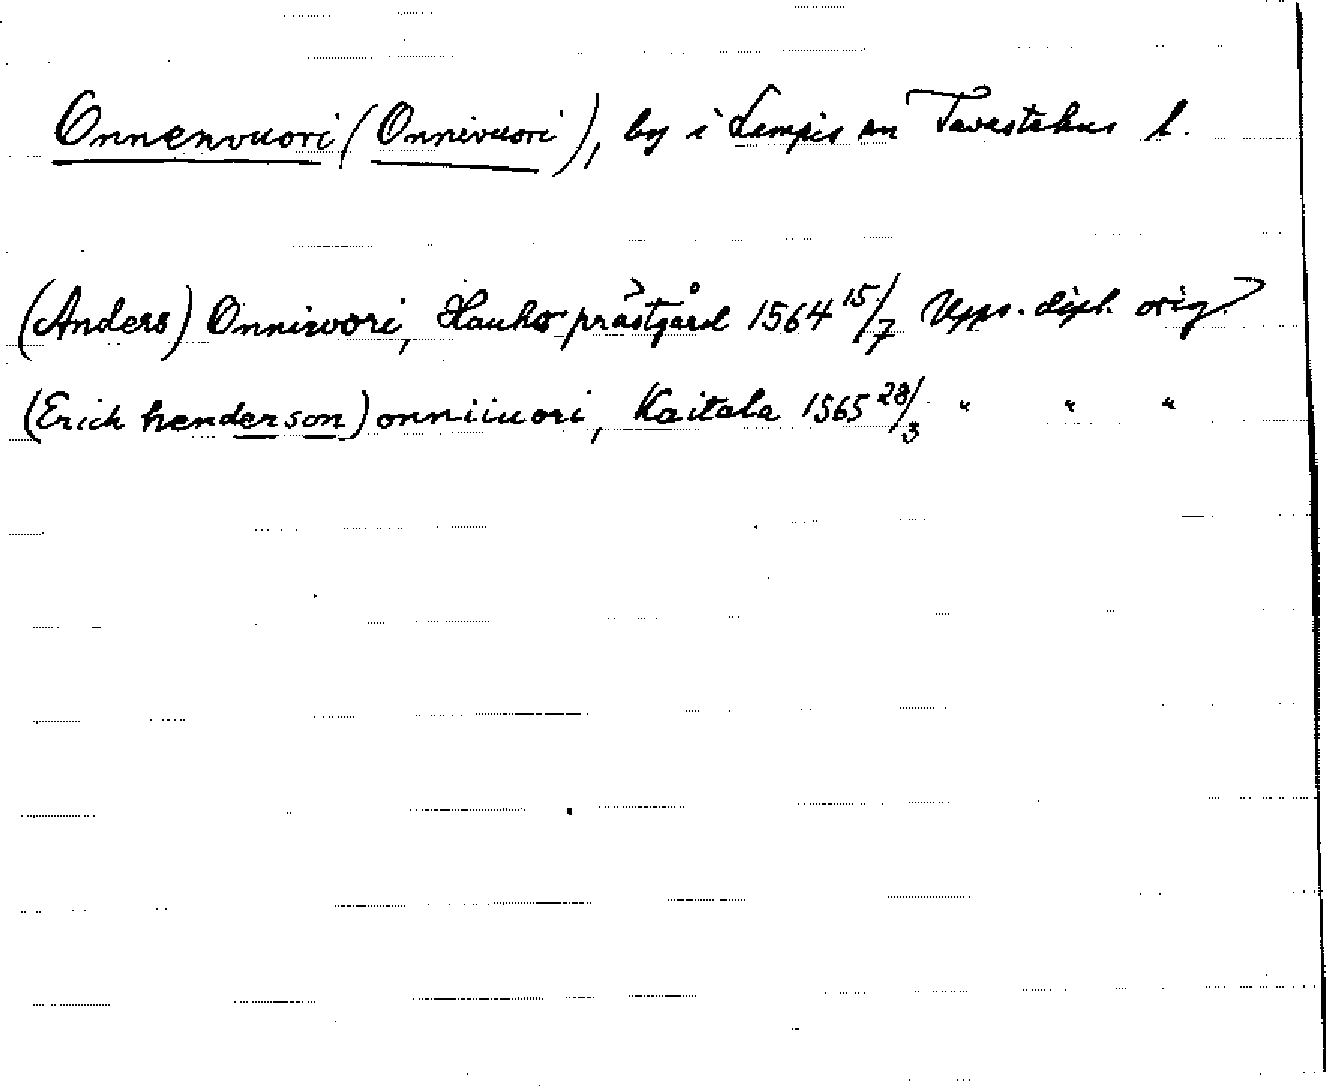 Onnenvuori (Onnivuori), by i Lampis sn Tavastehus l.
(Anders) Onniwori, Hauho prästgård 1564 15/7 Upps. dipl. orig
(Erich henderson) onniiuori, Kaitala 1565 28/3 " " "